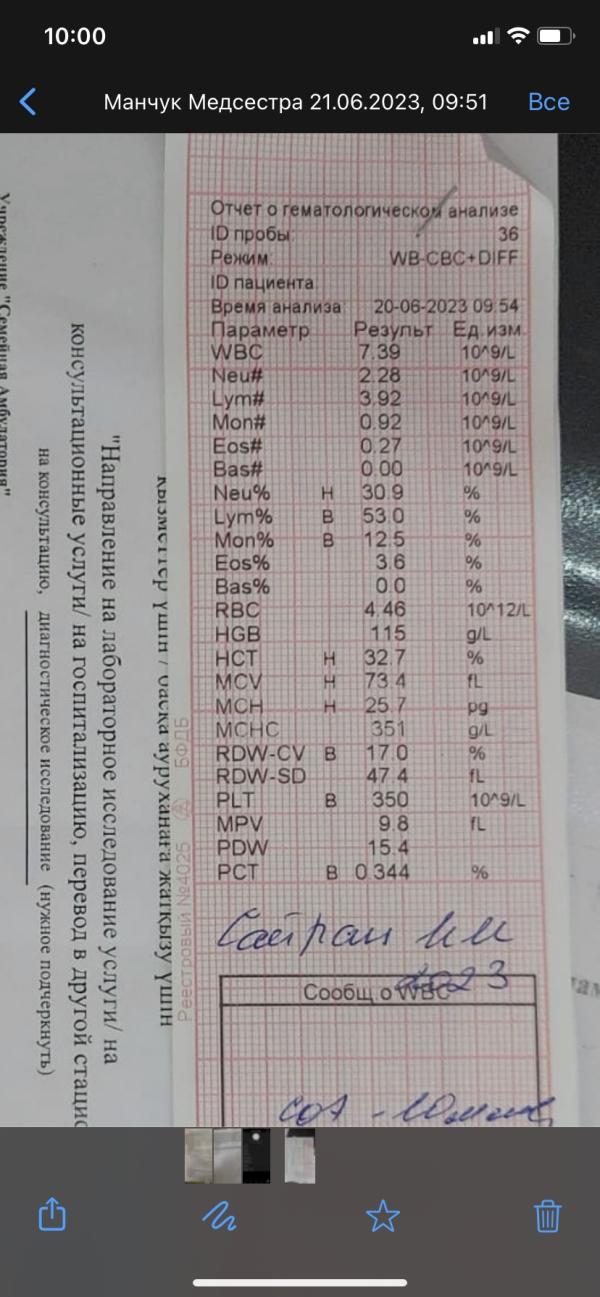 10:00
Манчук Медсестра 21.06.2023, 09:51
Все
Отчет о гематологическом анализе
ID пробы: 36
Режим: WB-CBC+DIFF
ID пациента
Время анализа 20-06-2023 09:54
Параметр Результ Ед.изм.
WBC 7.39 10^9/L
Neu# 2.28 10^9/L
Lym# 3.92 10^9/L
Mon# 0.92 10^9/L
Eos# 0.27 10^9/L
Bas# 0.00 10^9/L
Neu% Н 30.9 %
Lym% В 53.0 %
Mon% В 12.5 %
Eos% 3.6 %
Bas% 0.0 %
RBC 4.46 10^12/L
HGB 115 g/L
HCT Н 32.7 %
MCV Н 73.4 fL
MCH Н 25.7 pg
MCHC 351 g/L
RDW-CV В 17.0 %
RDW-SD 47.4 fL
PLT В 350 10^9/L
MPV 9.8 fL
PDW 15.4
PCT В 0.344 %
2023
Сообщ.о WBC
Реестровый №4025 БФДБ
қызметтер үшін / басқа ауруханаға жатқызу үшін
"Направление на лабораторное исследование услуги/ на
консультационные услуги/ на госпитализацию, перевод в другой стацио
на консультацию, диагностическое исследование (нужное подчеркнуть)
Учреждение "Семейная Амбулатория"